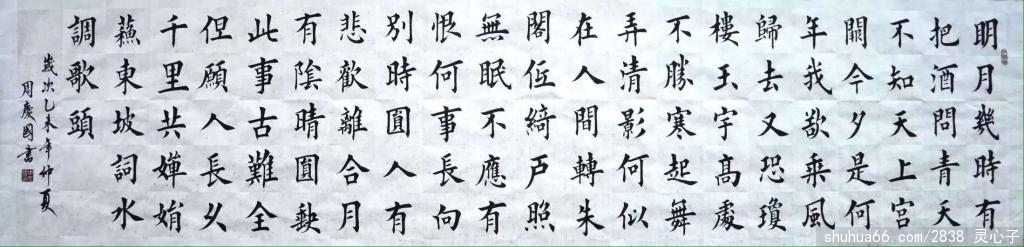 明月幾時有
把酒問青天
不知天上宮
闕今夕是何
年我欲乘風
歸去又恐瓊
樓玉宇高處
不勝寒起舞
弄清影何似
在人間轉朱
閣低綺戶照
無眠不應有
恨何事長向
別時圓人有
悲歡離合月
有陰晴圓缺
此事古難全
但願人長久
千里共嬋娟
蘇東坡詞水
調歌頭
歲次乙未年仲夏
周慶國書
shuhua66.com/2838 灵心子